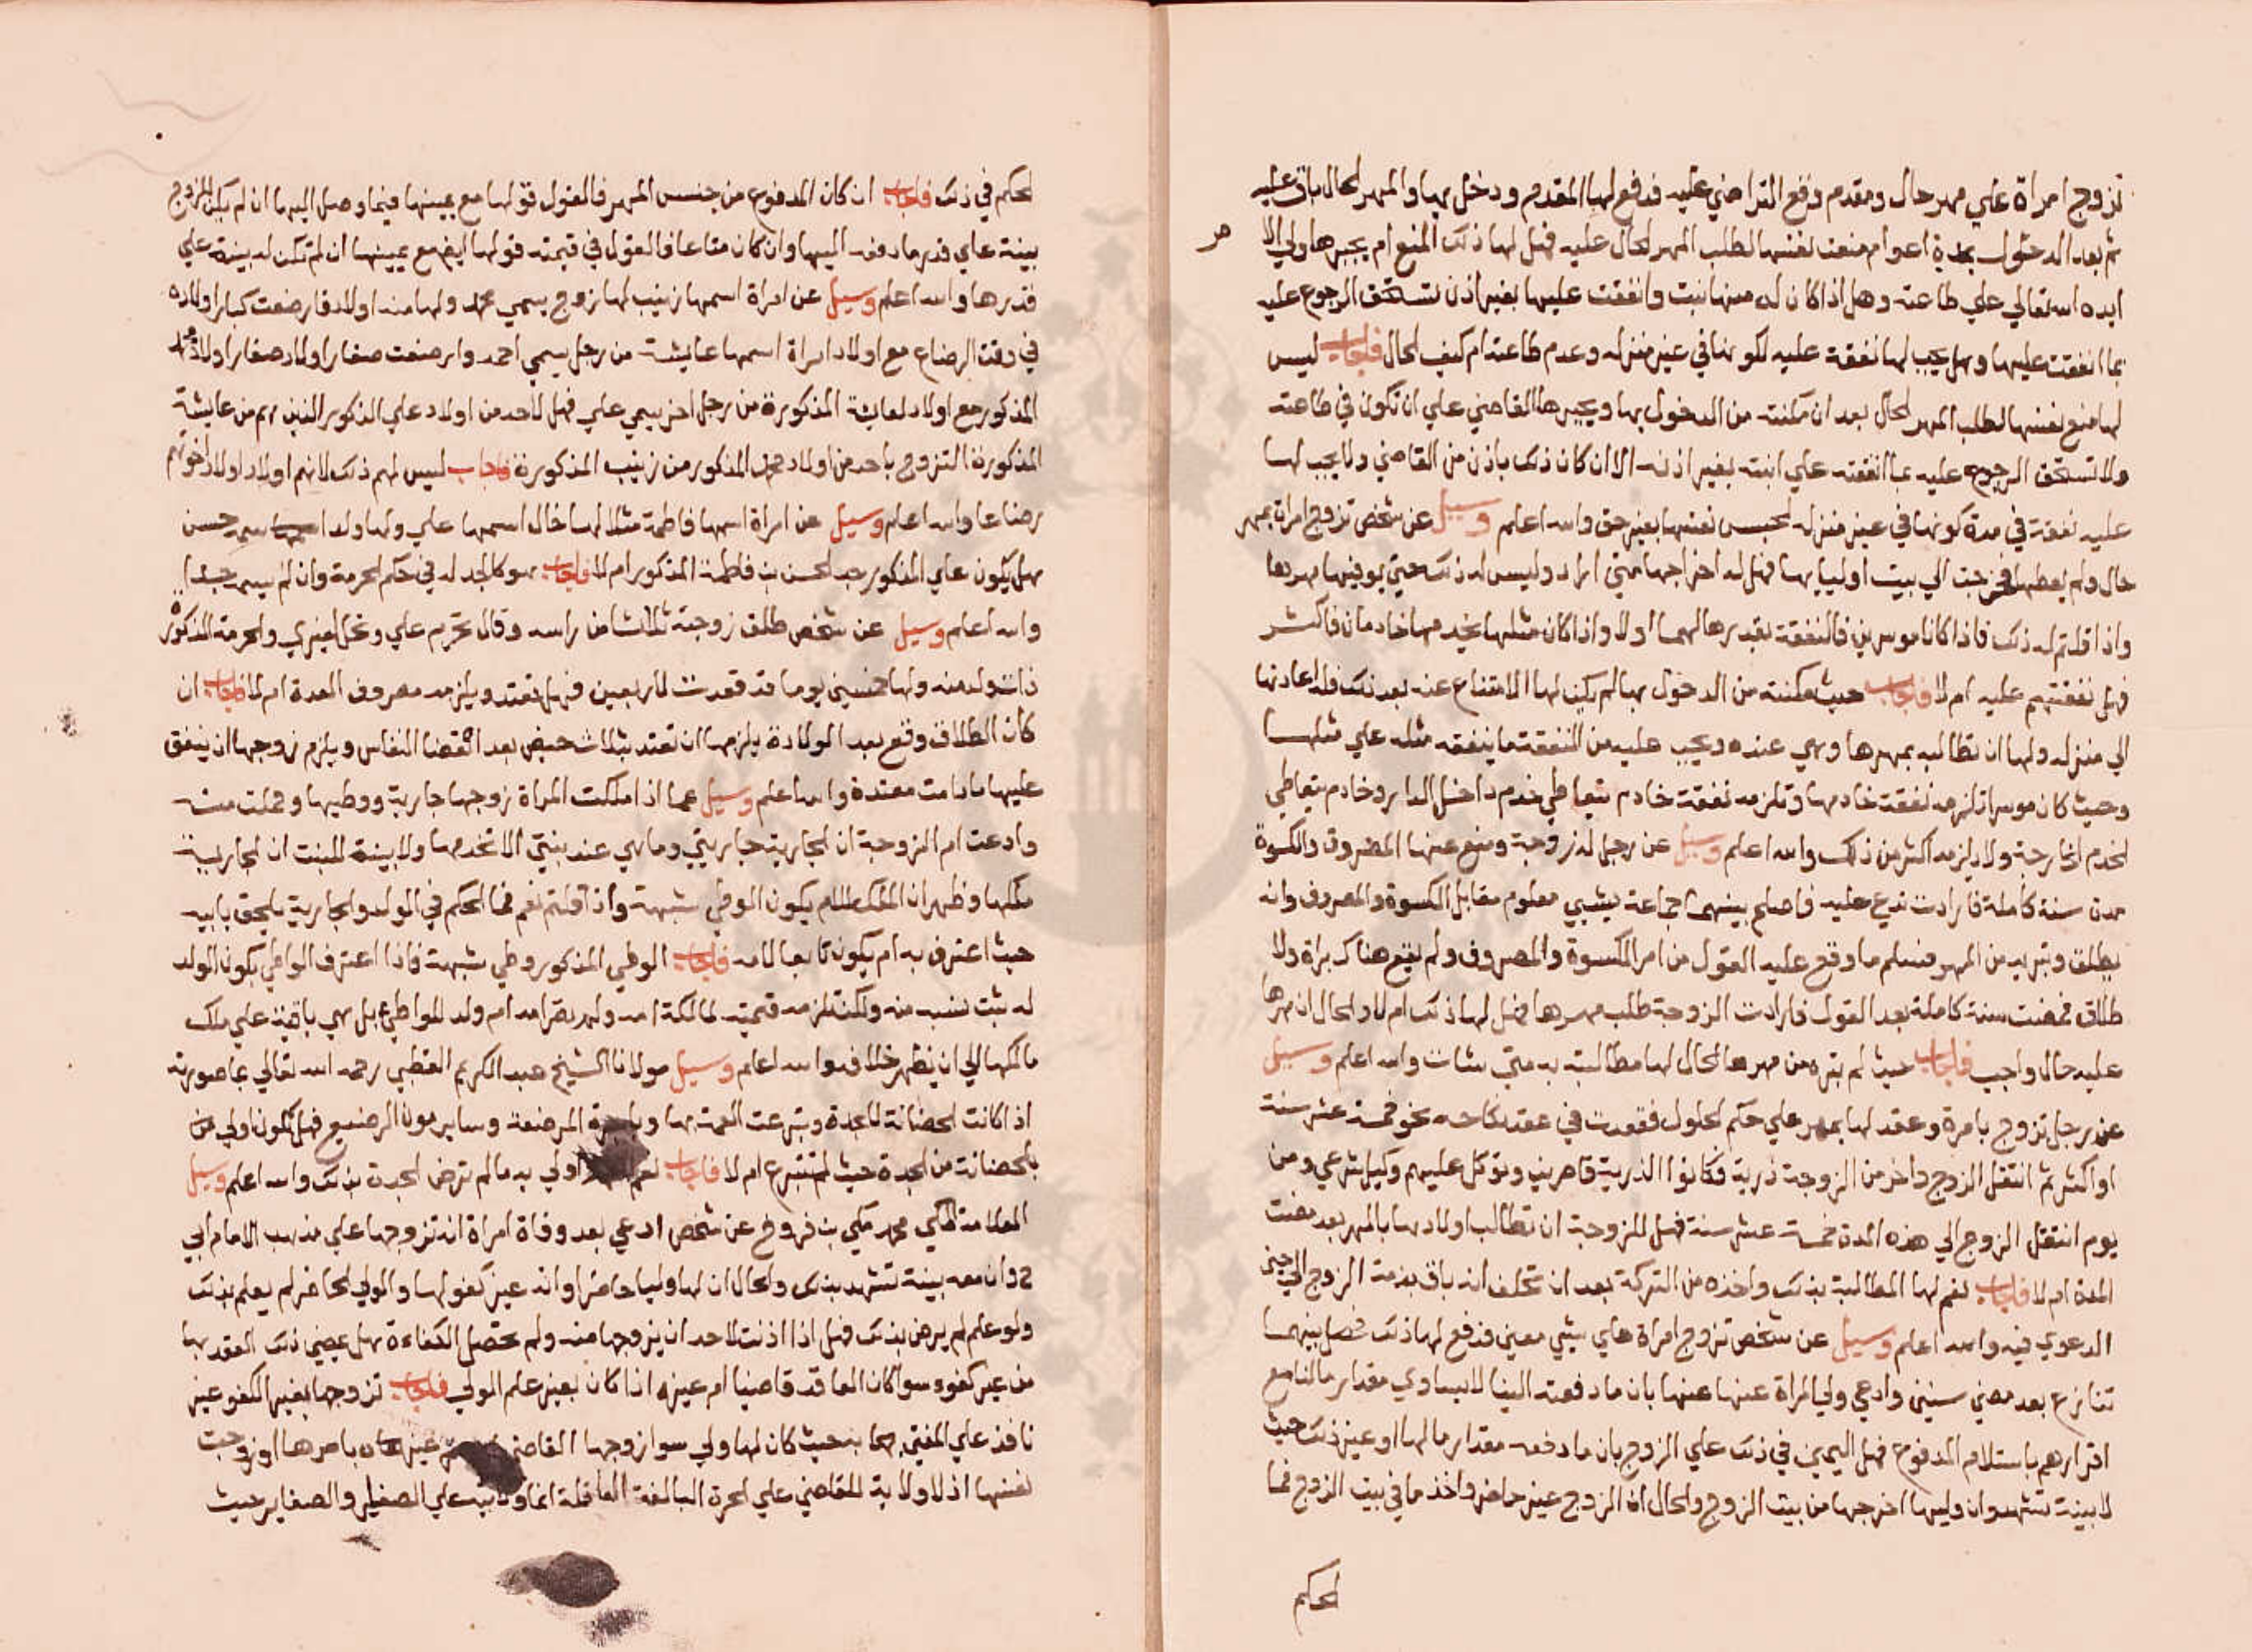 تزوج امراة علي مهر حال ومقدم وقع التراضي عليه فدفع لها المقدم ودخل بها والمهر الحال باق عليه
ثم بعد الدخول بمدة اعوام منعت نفسها لطلب المهر الحال عليه فهل لها ذلك المنع ام يجبرها ولي الا
مر
ايده الله تعالي علي طاعته وهل اذا كان له منها بنت وانفقت عليها بغير اذن تستحق الرجوع عليه
بما انفقت عليها وهل يجب لها نفقة عليه لكونها في غير منزله وعدم طاعته ام كيف الحال فاجاب ليس
لها منع نفسها لطلب المهر الحال بعد ان مكنته من الدخول بها ويجبرها القاضي علي ان تكون في طاعته
ولا تستحق الرجوع عليه بما انفقته علي ابنته بغير اذنه الا ان كان ذلك باذن من القاضي ولا يجب لها
عليه نفقة في مدة كونها في غير منزله لحبس نفسها بغير حق والله اعلم وسيل عن شخص تزوج امراة بمهر
حال ولم يعطها فخرجت الي بيت اوليايها فهل له اخراجها متي اراد وليس له ذلك حتي يوفيها مهرها
واذا قلتم له ذلك فاذا كانا موسرين فالنفقة بقدرها لهما او لا واذا كان مثلها يخدمها خادمان فاكثر
فهل نفقتهم عليه ام لا فاجاب حيث مكنته من الدخول بها لم يكن لها الامتناع عنه بعد ذلك فله اعادتها
الي منزله ولها ان تطالبه بمهرها وهي عنده ويجب عليه من النفقة ما ينفقه مثله علي مثلها
وحيث كان موسرا تلزمه نفقة خادمها وتلزمه نفقة خادم يتعاطي خدم داخل الدار وخادم يتعاطي
الخدم الخارجة ولا يلزمه اكثر من ذلك والله اعلم وسيل عن رجل له زوجة ومنع عنها المصروف والكسوة
مدة سنة كاملة فارادت تدع عليه فاصلح بينهما جماعة بشيي معلوم مقابل الكسوة والمصروف وانه
يطلق وتبريه من المهر فسلم ما وقع عليه القول من امر الكسوة والمصروف ولم يقع هناك براة ولا
طلاق فمضت سنة كاملة بعد القول فارادت الزوجة طلب مهرها فهل لها ذلك ام لا والحال ان مهرها
عليه حال واجب فاجاب حيث لم تبره من مهرها الحال لها مطالبته به متي شات والله اعلم وسيل
عن رجل تزوج بامرة وعقد لها بمهر علي حكم الحلول فقعدت في عقد نكاحه نحو خمسة عشر سنة
او اكثر ثم انتقل الزوج واخر من الزوجة ذرية وكانوا الذرية قاصرين وتوكل عليهم وكيل شرعي ومن
يوم انتقل الزوج الي هذه المدة خمسة عشر سنة فهل للزوجة ان تطالب اولادها بالمهر بعد مضت
المدة ام لا فاجاب نعم لها المطالبة بذلك واخذه من التركة بعد ان تحلف انه باق بذمة الزوج الي حين
الدعوي فيه والله اعلم وسيل عن شخص تزوج امراة علي شيي معين فدفع لها ذلك فحصل بينهما
تنازع بعد مضي سنين وادعي ولي المراة عنها بان ما دفعته الينا لا يساوي مقدار مالنا مع
اقرارهم باستلام المدفوع فهل اليمين في ذلك علي الزوج بان ما دفعه مقدار مالها او غير ذلك حيث
لا بينة تشهد وان وليها اخرجها من بيت الزوج والحال ان الزوج غير حاضر واخذ ما في بيت الزوج فما
الحكم
الحكم في ذلك فاجاب ان كان المدفوع من جنس المهر فالقول قولها مع يمينها فيما وصل اليها ان لم يكن للزوج
بينة علي قدر ما دفعه اليها وان كان متاعا فالقول في قيمته قولها ايضا مع يمينها ان لم تكن له بينة علي
قدرها والله اعلم وسيل عن امراة اسمها زينب لها زوج يسمي محمد ولها منه اولاد فارضعت كبار اولاده
في وقت الرضاع مع اولاد امراة اسمها عايشة من رجل يسمي احمد وارضعت صغار اولاد صغار اولاد محمد
المذكور مع اولاد لعايشة المذكورة من رجل اخر يسمي علي فهل لاحد من اولاد علي الذكور الذين هم من عايشة
المذكورة التزوج باحد من اولاد محمد المذكور من زينب المذكورة فاجاب ليس لهم ذلك لانهم اولاد اولاد اخوتهم
رضاعا والله اعلم وسيل عن امراة اسمها فاطمة مثلا لها خال اسمها علي ولها ولد اسمه حسن
هل يكون علي المذكور جد الحسن بن فاطمة المذكور ام لا فاجاب هو كالجد له في حكم الحرمة وان لم يسم جدا
والله اعلم وسيل عن شخص طلق زوجته ثلاثا من راسه وقال تحرم علي وتحل لغيري والحرمة المذكورة
ذات ولد منه ولها خمسين يوما قد قعدت للاربعين فهل تعتد ويلزمه مصروف العدة ام لا فاجاب ان
كان الطلاق وقع بعد الولادة يلزمها ان تعتد بثلاث حيض بعد انقضا النفاس ويلزم زوجها ان ينفق
عليها ما دامت معتدة والله اعلم وسيل عما اذا ملكت المراة زوجها جارية ووطيها وحملت منه
وادعت ام الزوجة ان الجارية جاريتي وما هي عند بنتي الا تخدمها ولا بينة للبنت ان الجارية
ملكها وظهر ان الملك للام يكون الوطي شبهة واذا قلتم نعم فما الحكم في الولد والجارية يلحق بابيه
حيث اعترف به ام يكون تابعا لامه فاجاب الوطي المذكور وطي شبهة فاذا اعترف الواطي بكون الولد
له ثبت نسبه منه ولكن تلزمه قيمته لمالكة امه ولم تصر امه ام ولد للواطي بل هي باقية علي ملك
مالكها الي ان يظهر خلافه والله اعلم وسيل مولانا الشيخ عبد الكريم القطبي رحمه الله تعالي بما صورته
اذا كانت الحضانة للجدة وتبرعت العمة بها وباجرة المرضعة وساير مون الرضيع فهل تكون اولي من
بالحضانة من الجدة حيث لم تتبرع ام لا فاجاب نعم اولي به ما لم ترض الجدة بذلك والله اعلم وسيل
العلامة المكي محمد مكي بن فروخ عن شخص ادعي بعد وفاة امراة انه تزوجها علي مذهب الامام ابي
ح وان معه بينة تشهد بذلك والحال ان لها وليا حاضرا وانه غير كفو لها والولي الحاضر لم يعلم بذلك
ولو علم لم يرض بذلك فهل اذا اذنت لاحد ان يزوجها منه ولم تحصل الكفاءة هل يمضي ذلك العقد بها
من غير كفوء سوا كان العاقد قاضيا ام غيره اذا كان بغير علم الولي فاجاب تزوجها بغير الكفو غير
نافذ علي المفتي به حيث كان لها ولي سوا زوجها القاضي غيره بامرها او زوجت
نفسها اذ لا ولاية للقاضي علي الحرة البالغة العاقلة انما ولايته علي الصغير والصغاير حيث